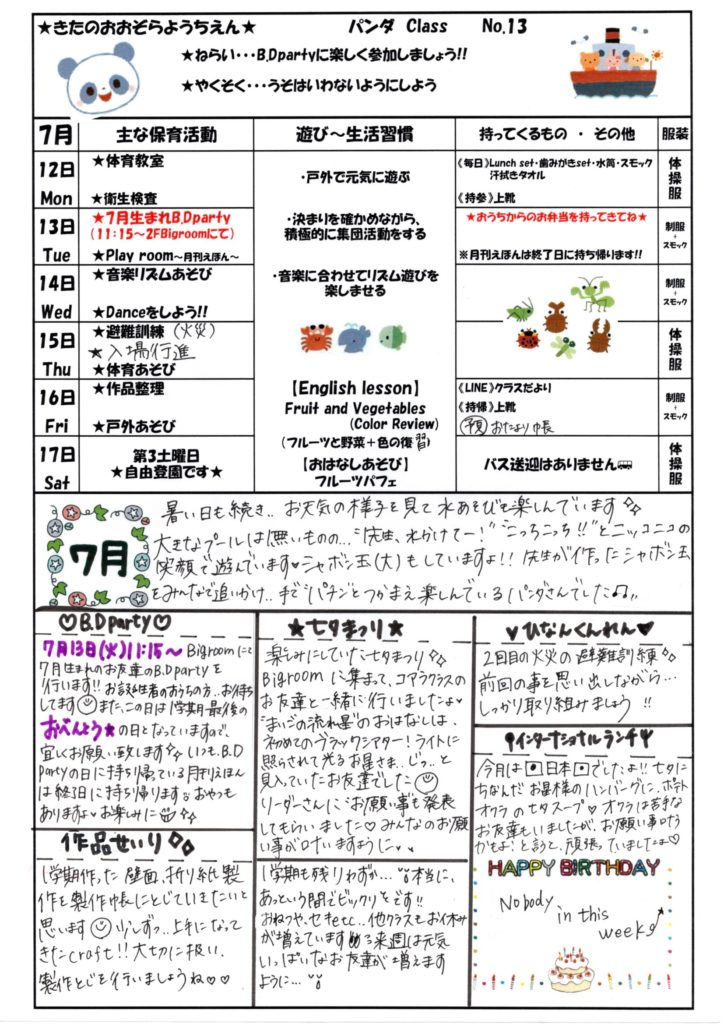 ★きたのおおぞらようちえん★ パンダ Class No.13
★ねらい・・・B.Dpartyに楽しく参加しましょう!!
★やくそく・・・うそはいわないようにしよう
7月 主な保育活動 遊び～生活習慣 持ってくるもの ・ その他 服装
12日 Mon
★体育教室
★衛生検査
《毎日》Lunch set・歯みがきset・水筒・スモック
汗拭きタオル
《持参》上靴
体操服
13日 Tue
★7月生まれB.Dparty
(11:15～2FBigroomにて)
★Play room～月刊えほん～
★おうちからのお弁当を持ってきてね★
※月刊えほんは終了日に持ち帰ります!!
制服+スモック
14日 Wed
★音楽リズムあそび
★Danceをしよう!!
制服+スモック
15日 Thu
★避難訓練(火災)
★入場行進
★体育あそび
体操服
16日 Fri
★作品整理
★戸外あそび
《LINE》クラスだより
《持帰》上靴
予夏 おたより帳
制服+スモック
17日 Sat
第3土曜日
★自由登園です★
バス送迎はありません
体操服
・戸外で元気に遊ぶ
・決まりを確かめながら、
積極的に集団活動をする
・音楽に合わせてリズム遊びを
楽しませる
【English lesson】
Fruit and Vegetables
(Color Review)
(フルーツと野菜+色の復習)
【おはなしあそび】
フルーツパフェ
7月
暑い日も続き.. お天気の様子を見て水あそびも楽しんでいます
大きなプールは無いものの..“先生、水かけてー!”“こっちこっち!!”とニッコニコの
笑顔で遊んでいます♥シャボン玉(大)もしていますよ!! 先生が作ったシャボン玉
をみんなで追いかけ.. 手で“パチン”とつかまえ楽しんでいるパンダさんでした♫..
♡B.Dparty♡
7月13日(火)11:15～Bigroomにて
7月生まれのお友達のB.Dpartyを
行います!! お誕生者のおうちの方..お待ち
してます また、この日は1学期最後の
おべんとう★の日となっていますので、
宜しくお願い致します いつも、B.D
Partyの日に持ち帰っている月刊えほん
は終3日に持ち帰ります おやつも
ありますよ♥お楽しみに
★七夕まつり★
楽しみにしていた七夕まつり
Bigroomに集まって、コアラクラスの
お友達と一緒に行いましたよ♥
“まいごの流れ星”のおはなしは、
初めてのブラックシアター!ライトに
照らされて光るお星さま..じっ..と
見入っていたお友達でした
リーダーさんに“お願い事”も発表
してもらいました♡みんなのお願
い事が叶いますように♥.
♥ひなんくんれん♥
2回目の火災の避難訓練
前回の事を思い出しながら…
しっかり取り組みましょう !!
インターナショナルランチ
今月は日本でしたよ!!七夕に
ちなんだお星様のハンバーグに、ポテト
オクラの七夕スープ♥オクラは苦手な
お友達もいましたが、お願い事叶う
かもよ!と言うと、頑張っていましたよ♡
作品せいり
1学期作った壁面、折り紙製
作を製作帳にとじていきたいと
思います 少しずつ..上手になって
きたcraft!!大切に扱い、
製作とじを行いましょうね♡♡
1学期も残りわずか…本当に、
あっという間でビックリです!!
おねつや、セキetc..他クラスもお休み
が増えています 来週は元気
いっぱいなお友達が増えます
ように…
HAPPY BIRTHDAY
Nobody
in this
week